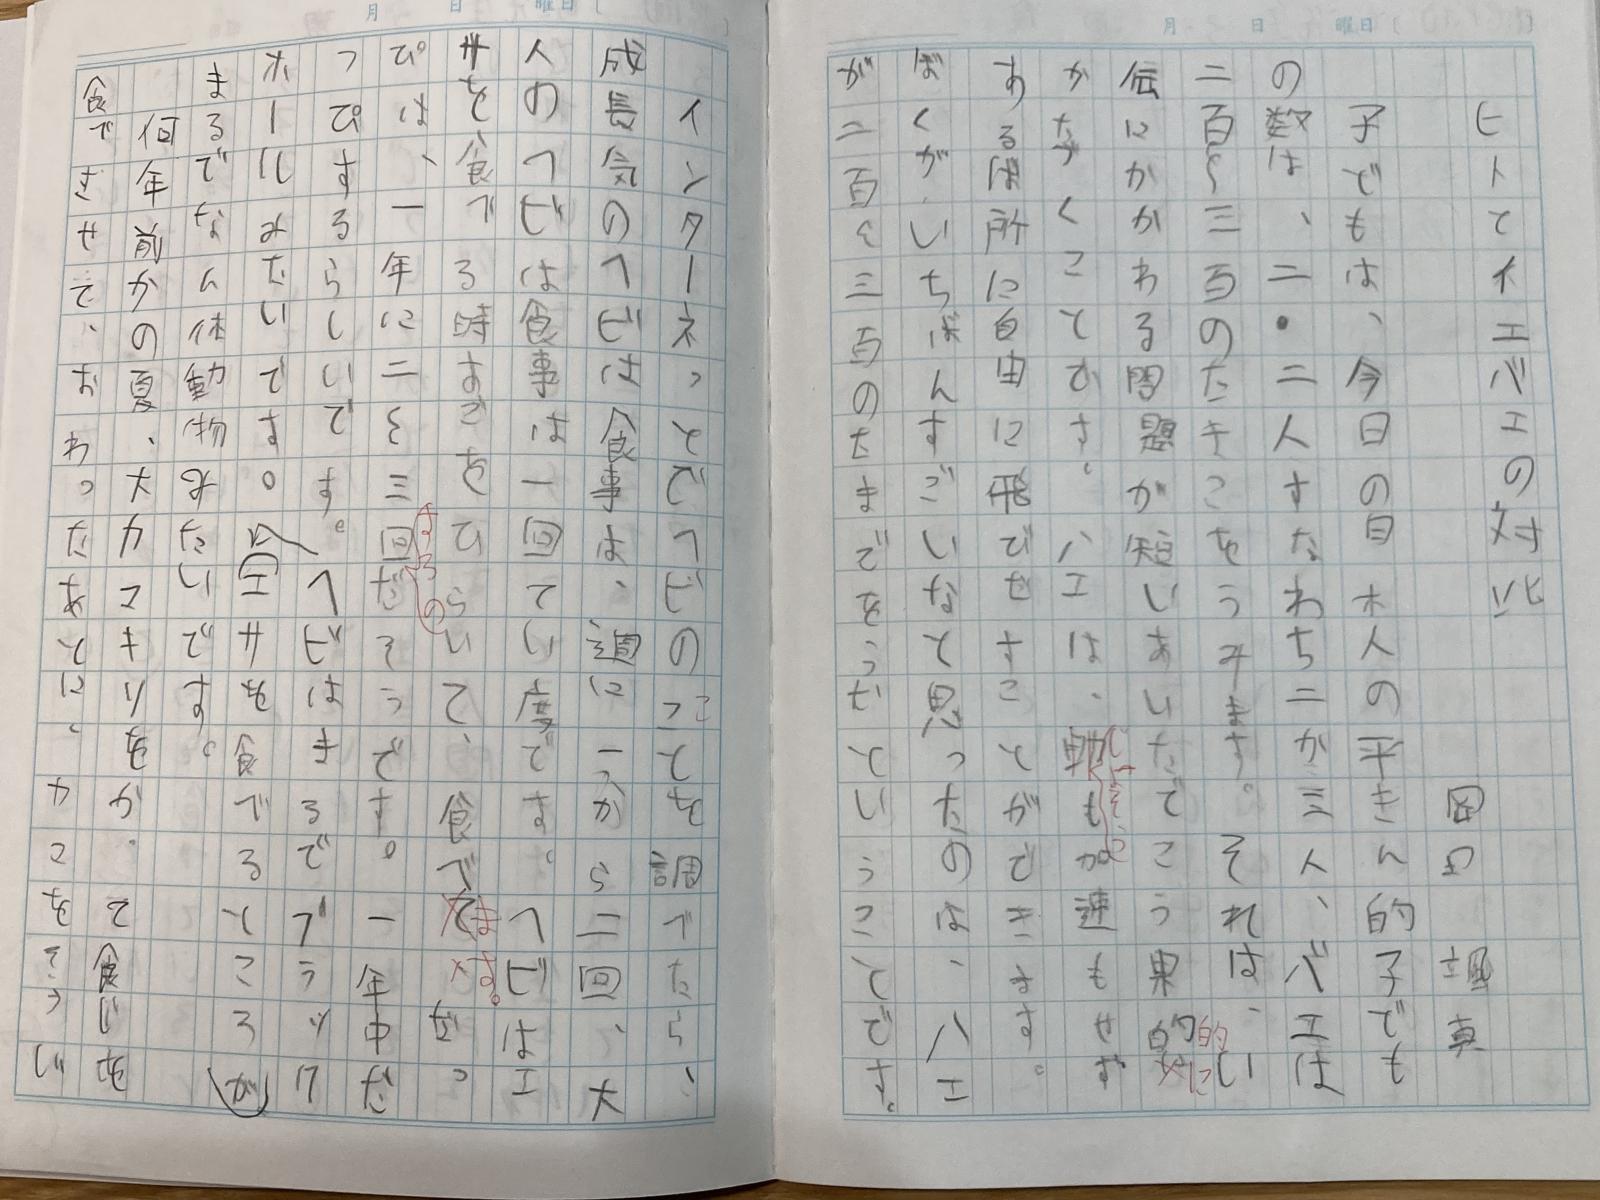 月 日 曜日
ヒトとイエバエの対比
子でもは、今日の日本人の平きん的子でも
の数は、二・二人すなわち二か三人、バエは
二百~三百のたまごをうみます。それは、い
伝にかかわる問題が短いあいだでこう果的に
かたづくことです。ハエは、軸も加速もせず
ある場所に自由に飛びだすことができます。
ぼくがいちばんすごいなと思ったのは、ハエ
が二百~三百のたまごをうむということです。
月 日 曜日
インターネットでヘビのことを調べたら、
成長気のヘビは食事は、週に一から二回、大
人のヘビは食事は一回ていどです。ヘビはエ
サを食べる時すごをひらいて、食べます。だっ
ぴは、一年に二~三回だそうです。一年中だ
っぴするらしいです。ヘビはまるでブラックル
ホールみたいです。エサを食べるところが
まるでなん体動物みたいです。
何年前かの夏、大カマキリをか。て食じを
食べさせて、おわったあとに、カゴをそうじ